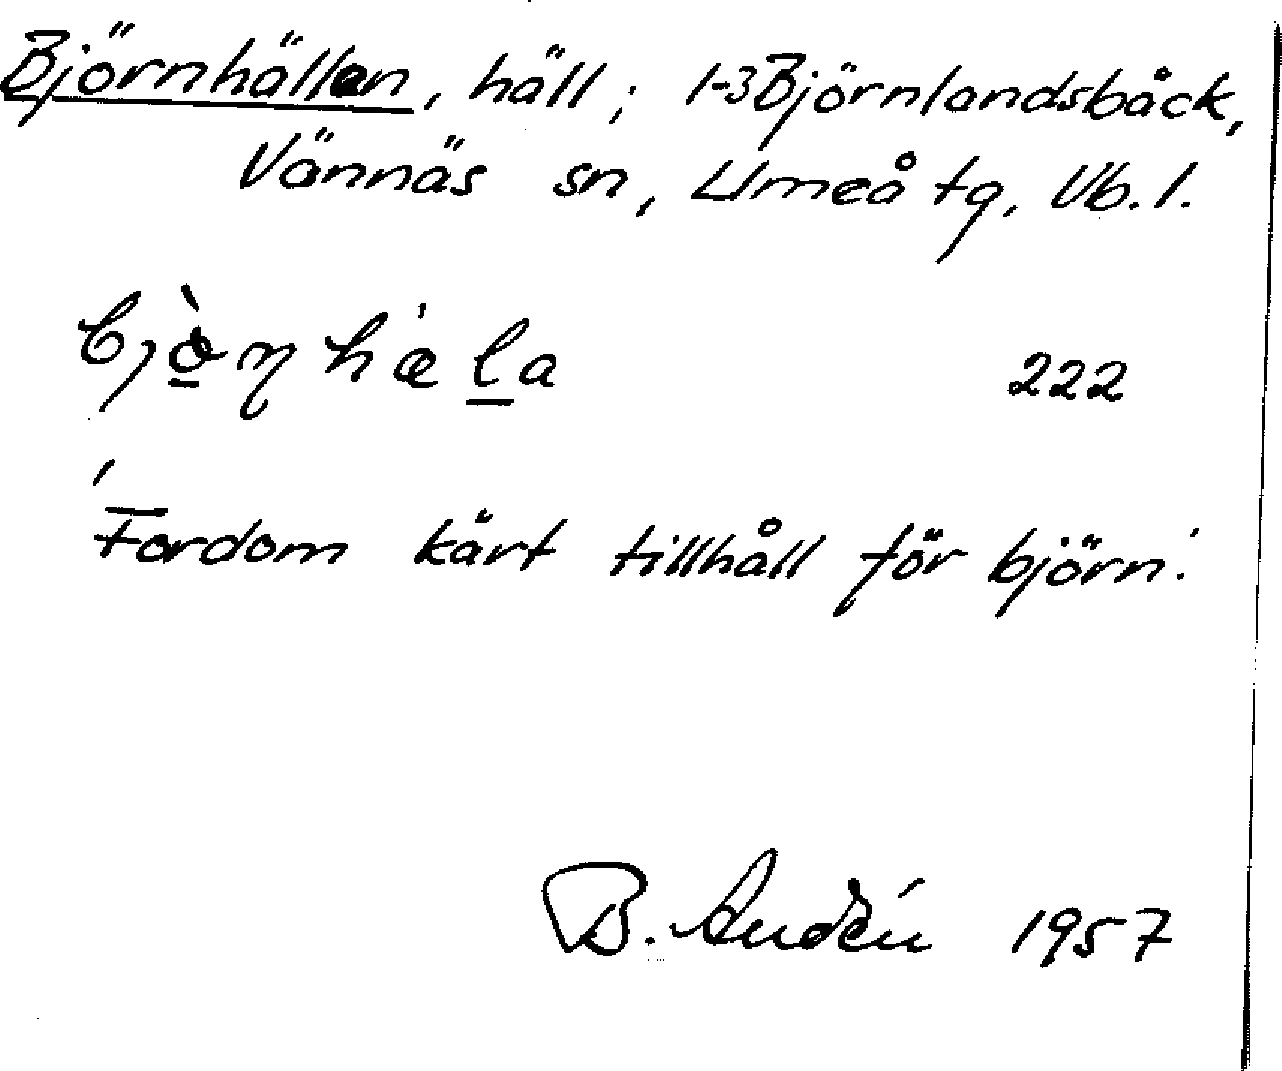 Björnhällan, häll; 1-3 Björnlandsbäck,
Vännäs sn, Umeå tg, Vb. l.
222
'Fordom kärt tillhåll för björn.'
B. Audén 1957